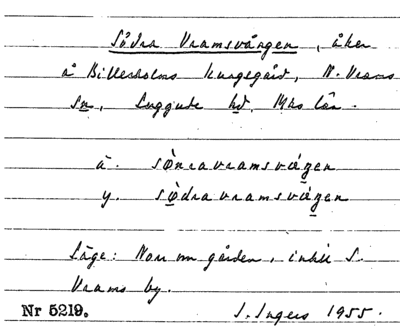 Södra Vramsvången, åker
å Billesholms kungsgård, N. Vrams
sn, Luggude hd. Mhs län.
ä. sönravramsvången
y. södravramsvången
Läge: Norr om gården, intill S.
Vrams by.
Nr 5219. I. Ingers 1955.